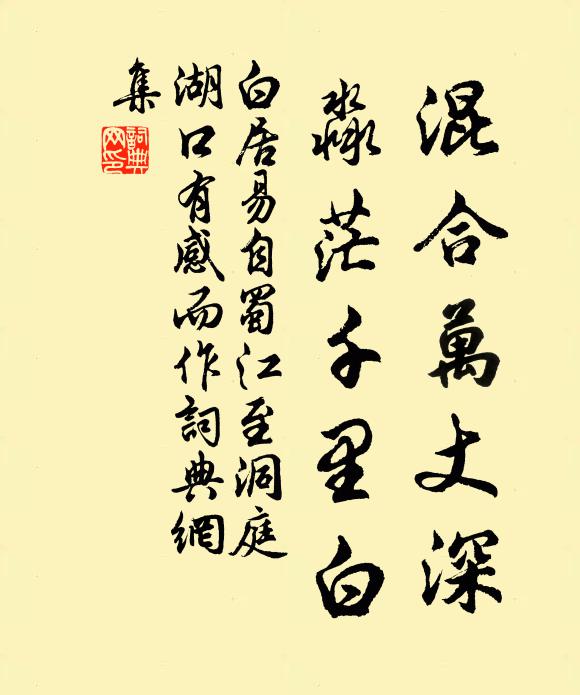 混合萬丈深
淼茫千里白
白居易自蜀江至洞庭
湖口有感而作詞典網
集
詞典
网印